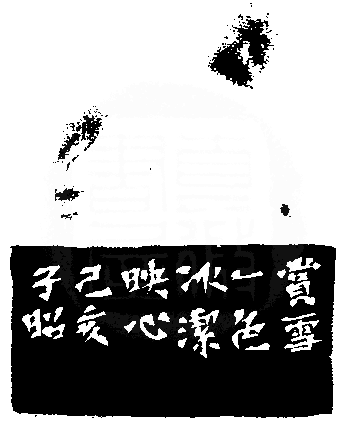 賞雪
一色
冰潔
映心
己亥
子昭